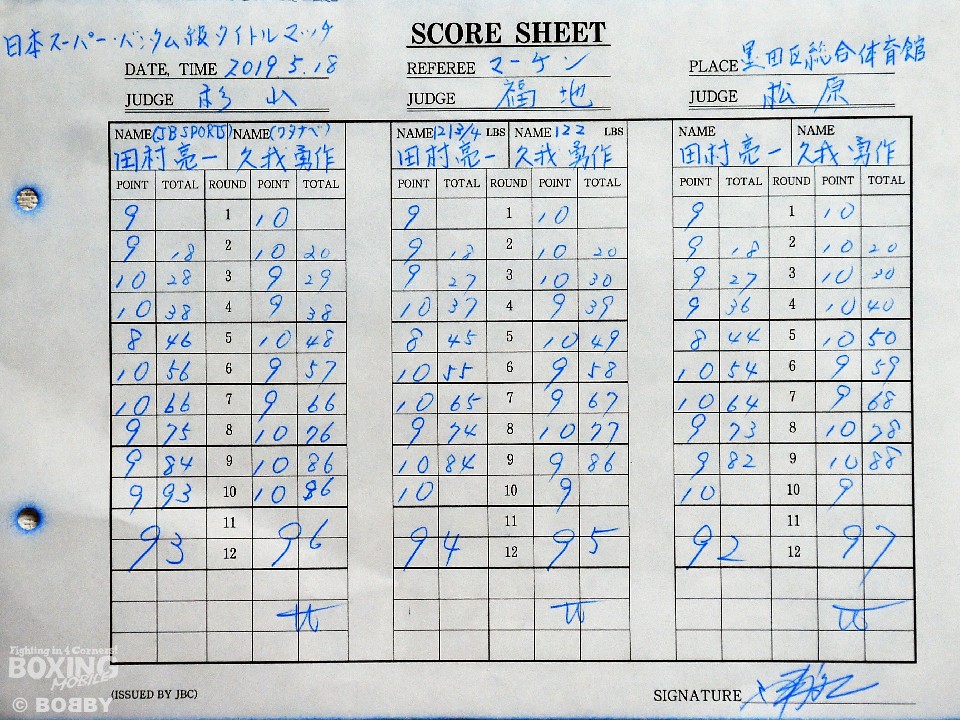 日本スーパー・バンタム級タイトルマッチ
SCORE SHEET
DATE, TIME 2019 5.18 REFEREE マーチン PLACE 墨田区総合体育館
JUDGE 杉山 JUDGE 福地 JUDGE 松原
NAME (JB SPORTS) NAME (ワタナベ) NAME 121 3/4 LBS NAME 122 LBS NAME NAME
田村亮一 久我勇作 田村亮一 久我勇作 田村亮一 久我勇作
POINT TOTAL ROUND POINT TOTAL POINT TOTAL ROUND POINT TOTAL POINT TOTAL ROUND POINT TOTAL
9 1 10 9 1 10 9 1 10
9 18 2 10 20 9 18 2 10 20 9 18 2 10 20
10 28 3 9 29 9 27 3 10 30 9 27 3 10 30
10 38 4 9 38 10 37 4 9 39 9 36 4 10 40
8 46 5 10 48 8 45 5 10 49 8 44 5 10 50
10 56 6 9 57 10 55 6 9 58 10 54 6 9 59
10 66 7 9 66 10 65 7 9 67 10 64 7 9 68
9 75 8 10 76 9 74 8 10 77 9 73 8 10 78
9 84 9 10 86 10 84 9 9 86 9 82 9 10 88
9 93 10 10 96 10 10 9 10 10 9
11 11 11
93 12 96 94 12 95 92 12 97
Fighting in 4 Corners!
BOXING
MOBILE
© BOBBY
(ISSUED BY JBC) SIGNATURE